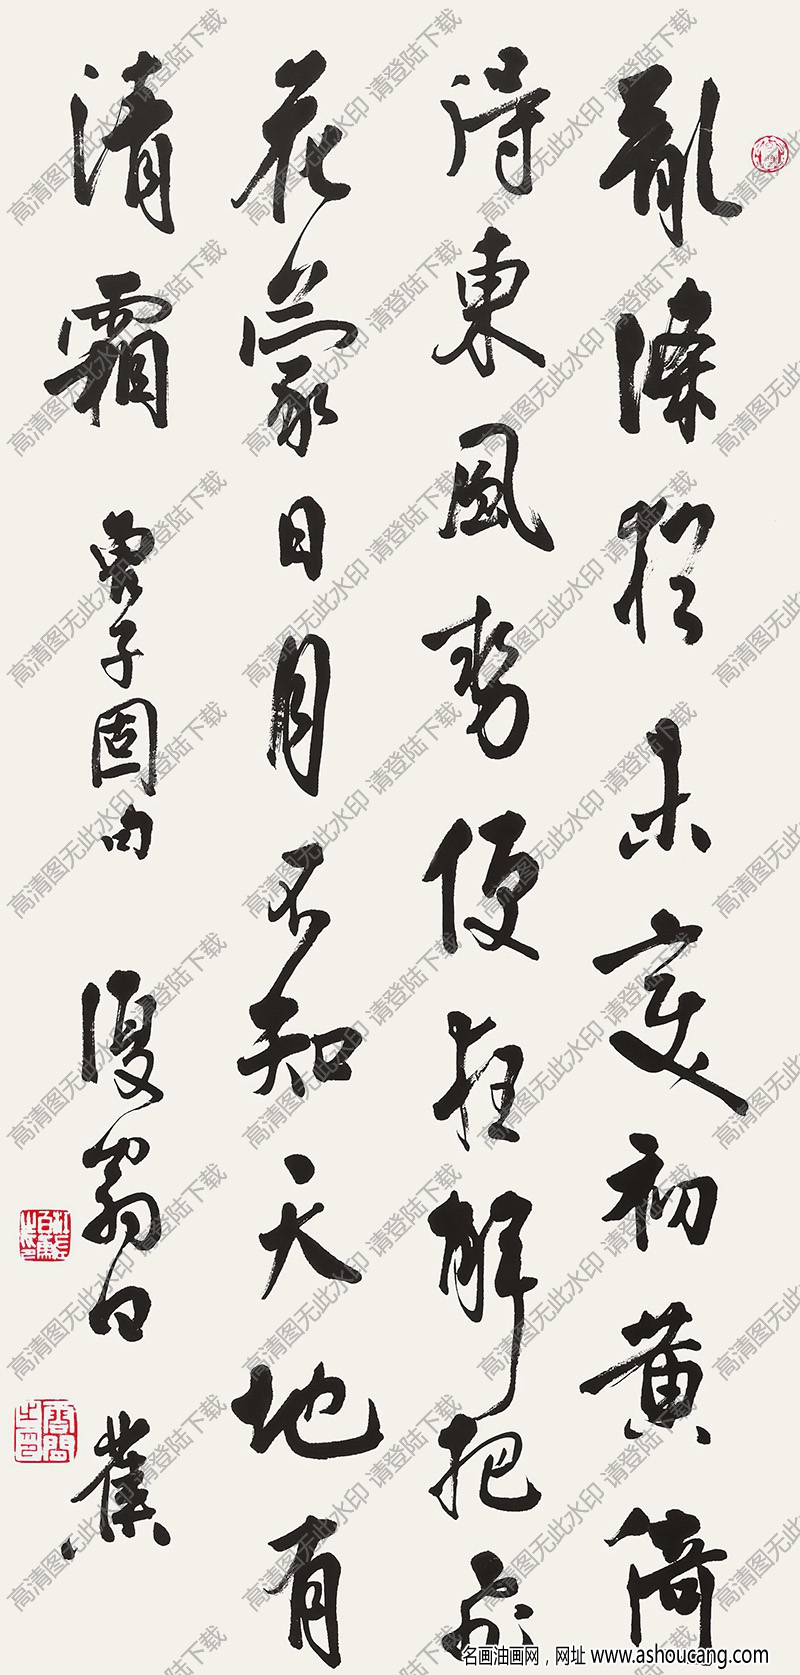 亂條猶未變初黃倚
得東風勢便狂解把飛
花蒙日月不知天地有
清霜 曾子固句 復翁白蕉
高清图无此水印 请登陆下载
名画油画网，网址 www.ashoucang.com